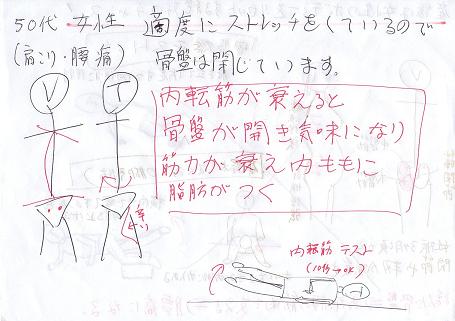 50代 女性 適度にストレッチをしているので
(肩こり・腰痛) 骨盤は閉じています。
内転筋が衰えると
骨盤が開き気味になり
筋力が衰え内ももに
脂肪がつく
V
T
内転筋テスト
(10秒→OK)